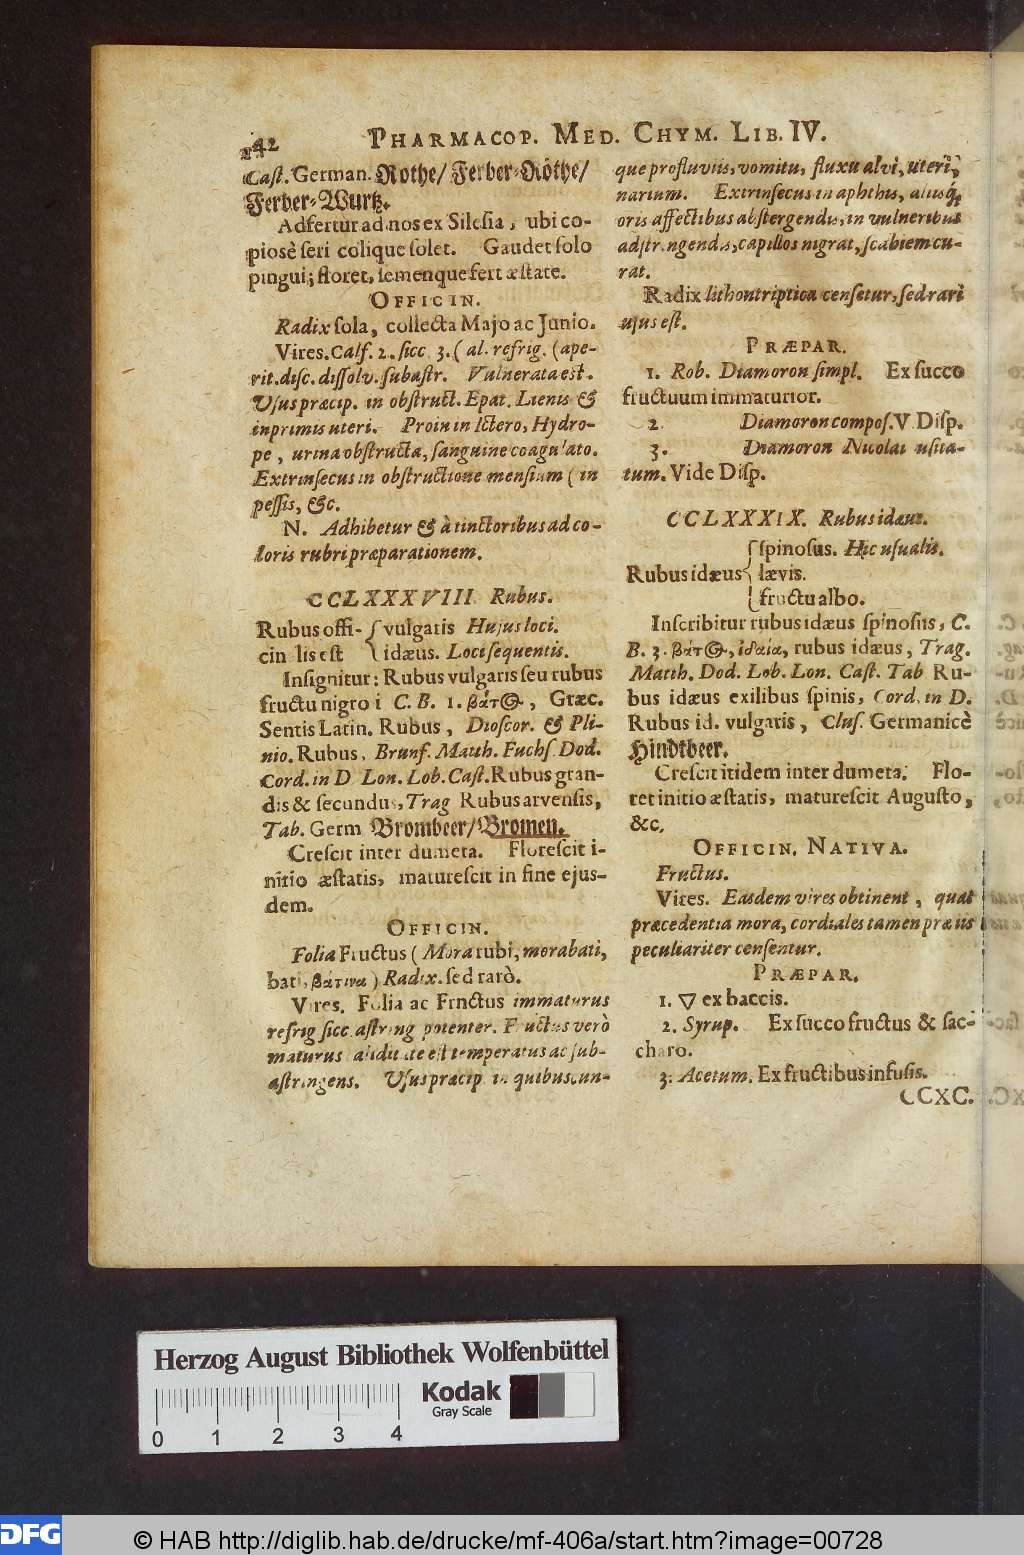 242 PHARMACOP. MED. CHYM. LIB. IV.
Cast. German. Rothe/ Ferber-Röthe/
Ferber-Wurtz.
Adfertur ad nos ex Silesia, ubi co-
piosè seri colique solet. Gaudet solo
pingui; floret, semenque fert æstate.
OFFICIN.
Radix sola, collecta Majo ac Junio.
Vires. Calf. 2. sicc. 3. (al. refrig. (ape-
rit. disc. dissolv. subastr. Vulnerata est.
Usus præcip. in obstruct. Epat. Lienis &
inprimis uteri. Proin in Ictero, Hydro-
pe, urina obstructa, sanguine coagulato.
Extrinsecus in obstructione mensium (in
pessis, &c.
N. Adhibetur & à tinctoribus ad co-
loris rubri præparationem.
CCLXXXVIII Rubus.
Rubus offi- { vulgaris Hujus loci.
cin lis est { idæus. Loci sequentis.
Insignitur: Rubus vulgaris seu rubus
fructu nigro C. B. 1. βάτ, Græc.
Sentis Latin. Rubus, Dioscor. & Pli-
nio. Rubus, Brunf. Matth. Fuchs. Dod.
Cord. in D Lon. Lob. Cast. Rubus gran-
dis & secundus, Trag Rubus arvensis,
Tab. Germ Brombeer/ Bromen.
Crescit inter dumeta. Florescit i-
nitio æstatis, maturescit in fine ejus-
dem.
OFFICIN.
Folia Fructus (Mora rubi, morabati,
bati, βάτινα) Radix. sed rarò.
Vires. Folia ac Frnctus immaturus
refrig sicc astring potenter. Fructus verò
maturus est temperatus ac sub-
astringens. Usus præcip in quibuscun-
que profluviis, vomitu, fluxu alvi, uteri,
narium. Extrinsecus in aphthis, aliisq́;
oris affectibus abstergendis, in vulneribus
adstringendis, capillos nigrat, scabiem cu-
rat.
Radix lithontriptica censetur, sed rari
usus est.
PRÆPAR.
1. Rob. Diamoron simpl. Ex succo
fructuum immaturior.
2. Diamoron compos. V. Disp.
3. Diamoron Nicolai usita-
tum. Vide Disp.
CCLXXXIX. Rubus idæus.
{ spinosus. Hic usualis.
Rubus idæus { lævis.
{ fructu albo.
Inscribitur rubus idæus spinosus, C.
B. 3. βάτ, ἰδαία, rubus idæus, Trag.
Matth. Dod. Lob. Lon. Cast. Tab Ru-
bus idæus exilibus spinis, Cord. in D.
Rubus id. vulgaris, Clus. Germanicè
Hindtbeer.
Crescit itidem inter dumeta. Flo-
ret initio æstatis, maturescit Augusto,
&c.
OFFICIN. NATIVA.
Fructus.
Vires. Easdem vires obtinent, quas
præcedentia mora, cordiales tamen præ iis
peculiariter censentur.
PRÆPAR.
1. ▽ ex baccis.
2. Syrup. Ex succo fructus & sac-
charo.
3. Acetum. Ex fructibus infusis.
CCXC.
Herzog August Bibliothek Wolfenbüttel
Kodak
Gray Scale
0 1 2 3 4
DFG © HAB http://diglib.hab.de/drucke/mf-406a/start.htm?image=00728